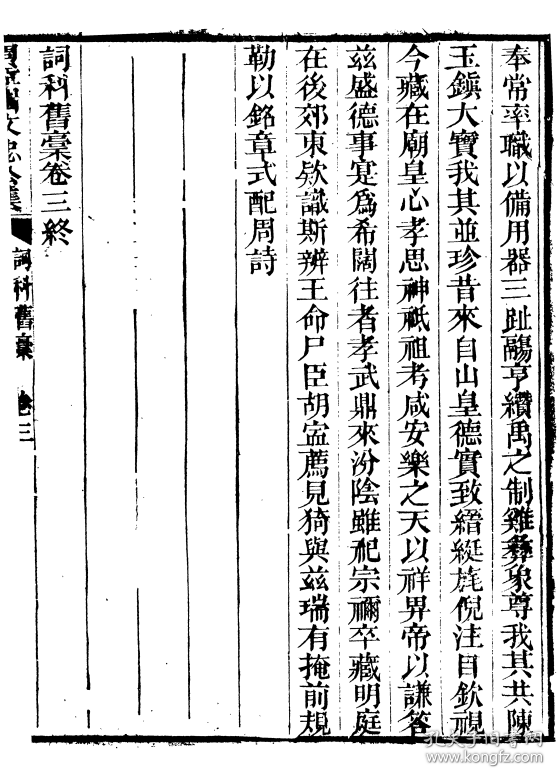 奉常率職以備用器三趾鬺亨纘禹之制雞彝象尊我其共陳
玉鎮大寶我其並珍昔來自山皇德實致縉綎旄倪注目欽視
今藏在廟皇心孝思神祇祖考咸安樂之天以祥畀帝以謙答
茲盛德事寔爲希闊往者孝武鼎來汾陰雖祀宗禰卒藏明庭
在後郊東欵識斯辨王命尸臣胡寍薦見猗與茲瑞有掩前規
勒以銘章式配周詩
詞科舊稾卷三終
文忠公集 詞科舊稾 卷三
孔夫子旧书网
www.kongfz.com